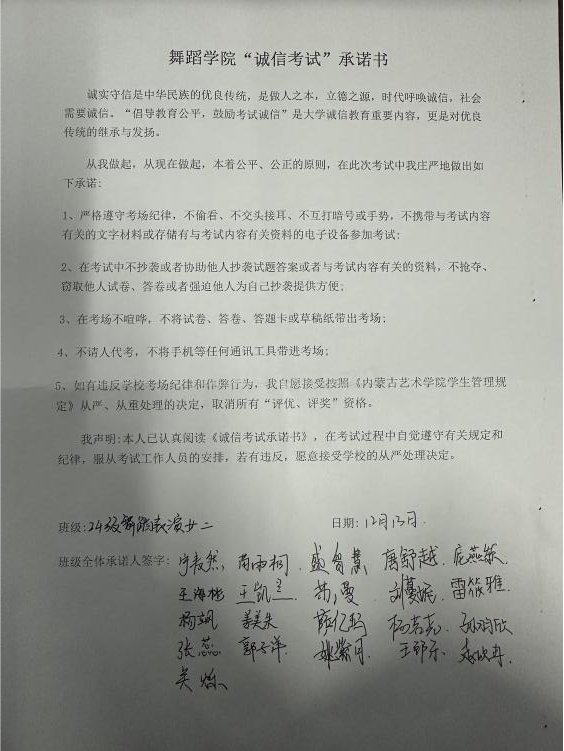 舞蹈学院“诚信考试”承诺书
诚实守信是中华民族的优良传统，是做人之本，立德之源，时代呼唤诚信，社会
需要诚信。“倡导教育公平，鼓励考试诚信”是大学诚信教育重要内容，更是对优良
传统的继承与发扬。
从我做起，从现在做起，本着公平、公正的原则，在此次考试中我庄严地做出如
下承诺:
1、严格遵守考场纪律，不偷看、不交头接耳、不互打暗号或手势，不携带与考试内容
有关的文字材料或存储有与考试内容有关资料的电子设备参加考试;
2、在考试中不抄袭或者协助他人抄袭试题答案或者与考试内容有关的资料，不抢夺、
窃取他人试卷、答卷或者强迫他人为自己抄袭提供方便;
3、在考场不喧哗，不将试卷、答卷、答题卡或草稿纸带出考场;
4、不请人代考，不将手机等任何通讯工具带进考场;
5、如有违反学校考场纪律和作弊行为，我自愿接受按照《内蒙古艺术学院学生管理规
定》从严、从重处理的决定，取消所有“评优、评奖”资格。
我声明:本人已认真阅读《诚信考试承诺书》，在考试过程中自觉遵守有关规定和
纪律，服从考试工作人员的安排，若有违反，愿意接受学校的从严处理决定。
班级:24级舞蹈表演女二 日期:12月13日.
班级全体承诺人签字: 唐舒越.
王海彬 王凯 刘蔓 雷筱雅.
杨飒 姜美朱
张蕊 郭子洋. 姚紫月.